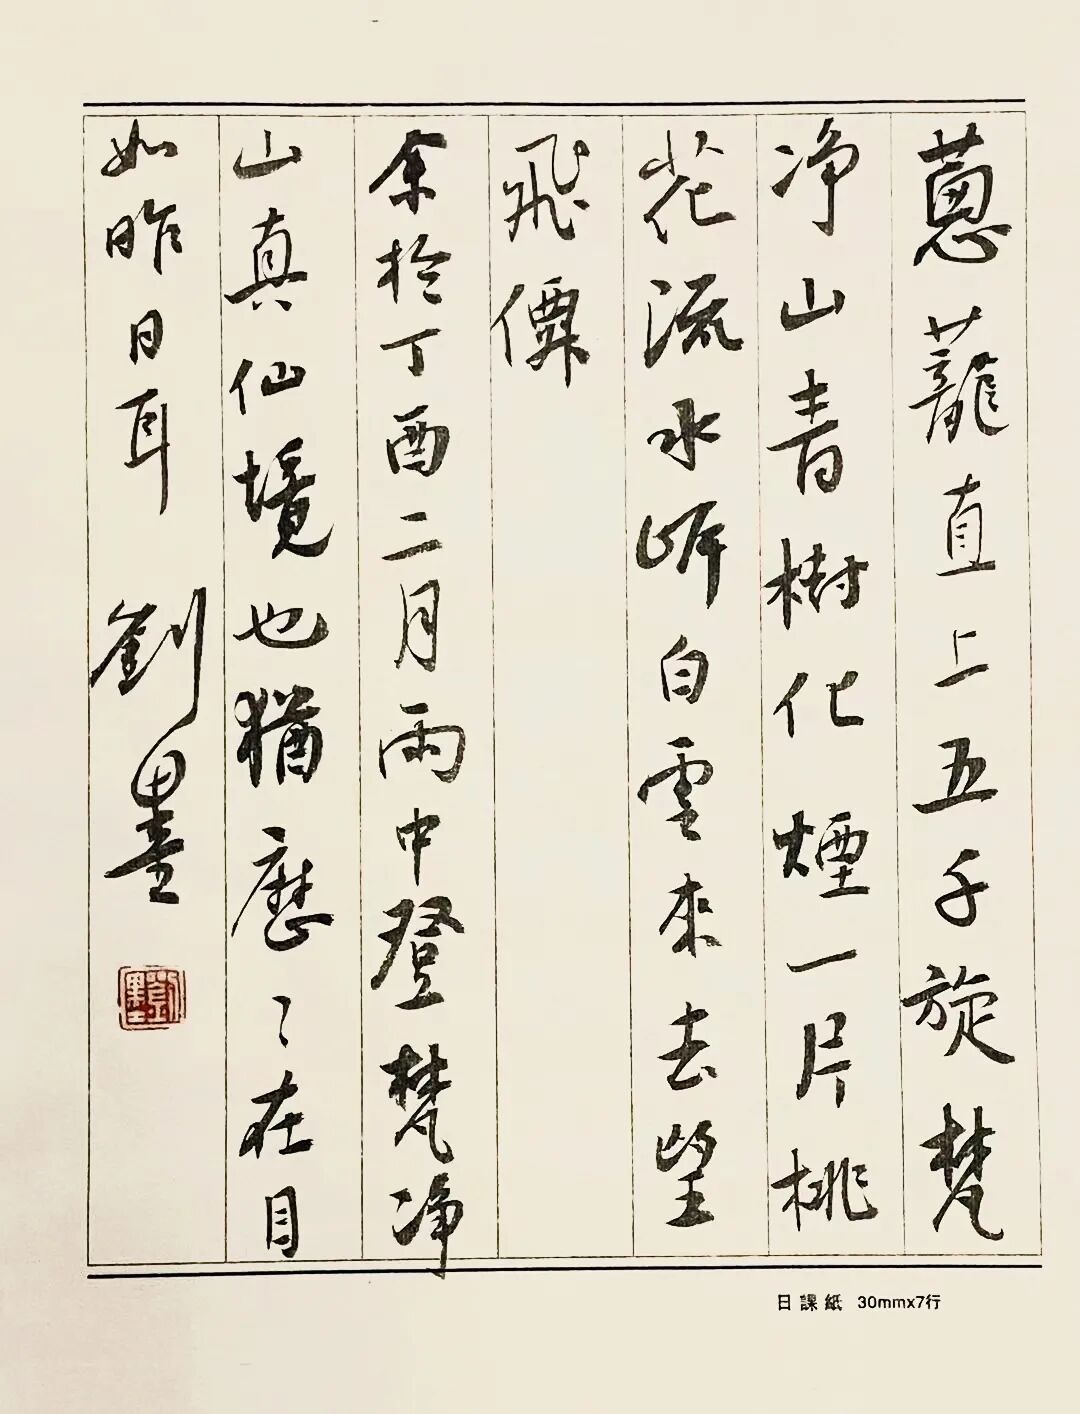 蔥蘢直上五千旋梵
净山青樹化煙一片桃
花流水岍白雲來去望
飛僊
余於丁酉二月雨中登梵净
山真仙境也猶歷〻在目
如昨日耳 劉墨
劉墨
日課紙 30mmx7行